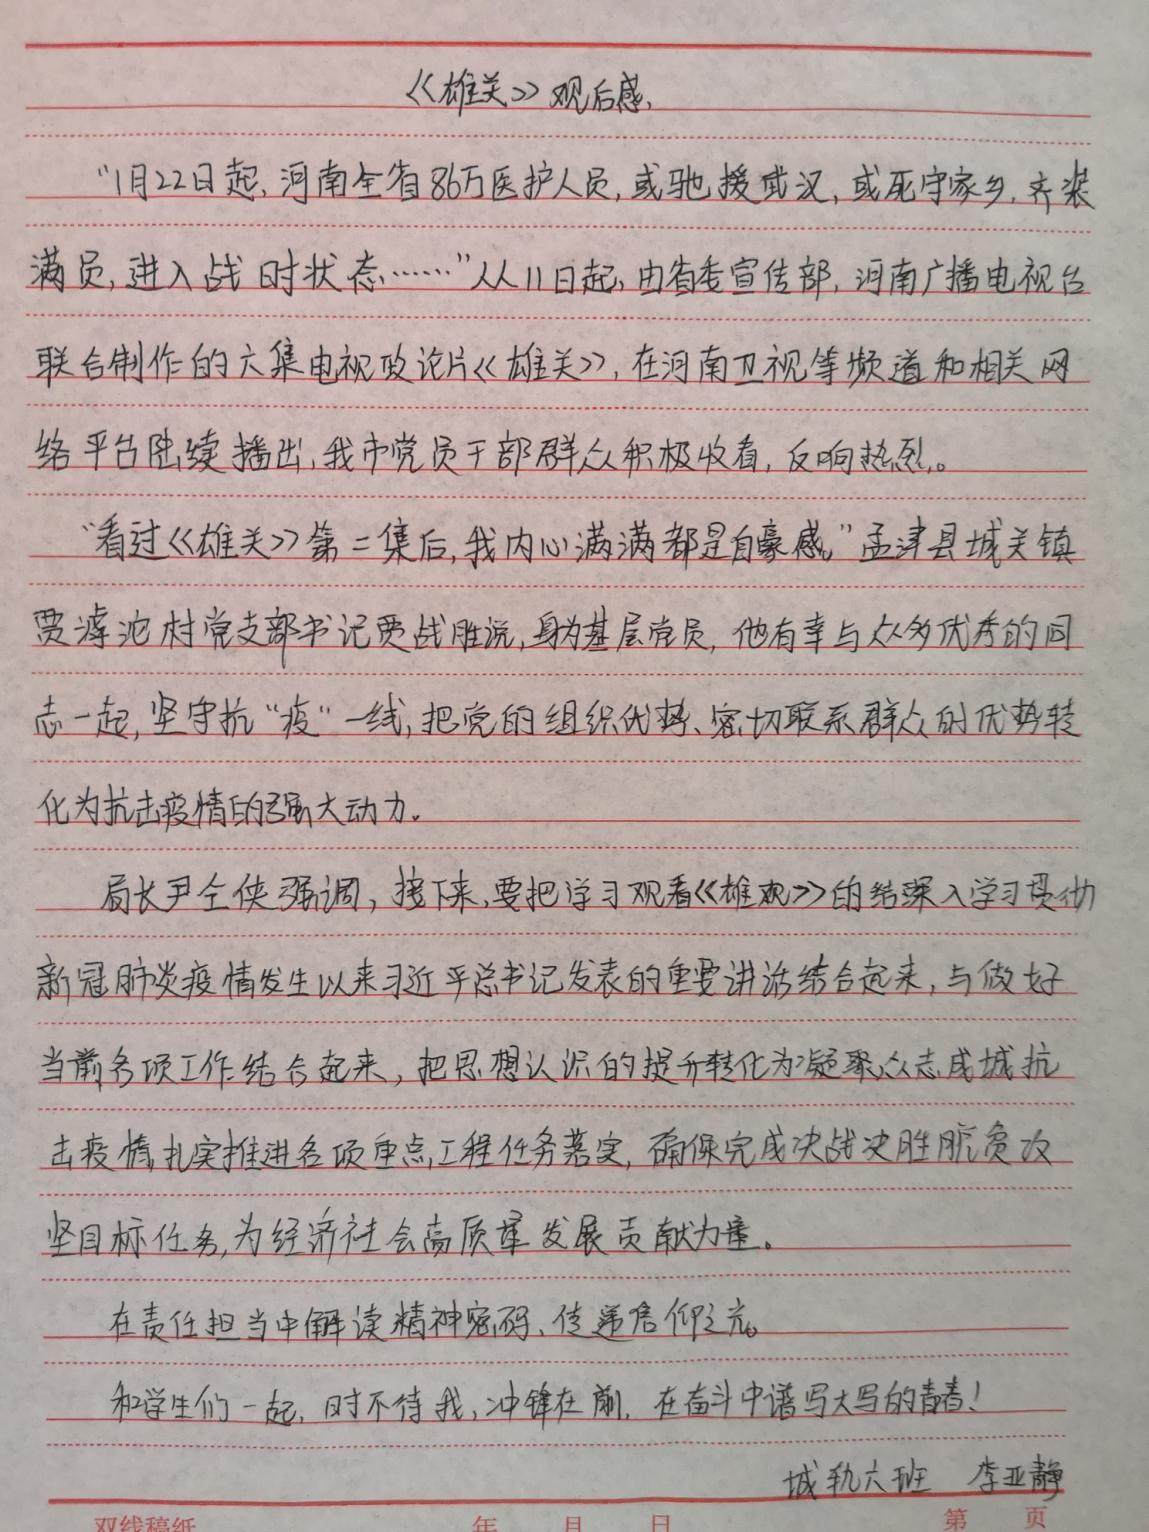 《雄关》观后感.
"1月22日起,河南全省86万医护人员,或驰援武汉,或死守家乡,齐装
满员,进入战时状态……"从11日起,由省委宣传部,河南广播电视台
联合制作的六集电视政论片《雄关》,在河南卫视等频道和相关网
络平台陆续播出,我市党员干部群众积极收看,反响热烈。
"看过《雄关》第二集后,我内心满满都是自豪感。"孟津县城关镇
贾滹沱村党支部书记贾战胜说,身为基层党员,他有幸与众多优秀的同
志一起,坚守抗"疫"一线,把党的组织优势、密切联系群众的优势转
化为抗击疫情的强大动力。
局长尹仝侠强调,接下来,要把学习观看《雄观》的结深入学习贯彻
新冠肺炎疫情发生以来习近平总书记发表的重要讲话结合起来,与做好
当前各项工作结合起来,把思想认识的提升转化为凝聚众志成城抗
击疫情,扎实推进各项重点工程任务落实,确保完成决战决胜脱贫攻
坚目标任务,为经济社会高质量发展贡献力量。
在责任担当中解读精神密码、传递信仰之光。
和学生们一起,时不待我,冲锋在前,在奋斗中谱写大写的青春!
城轨六班 李亚静
双线稿纸 年 月 日 第 页